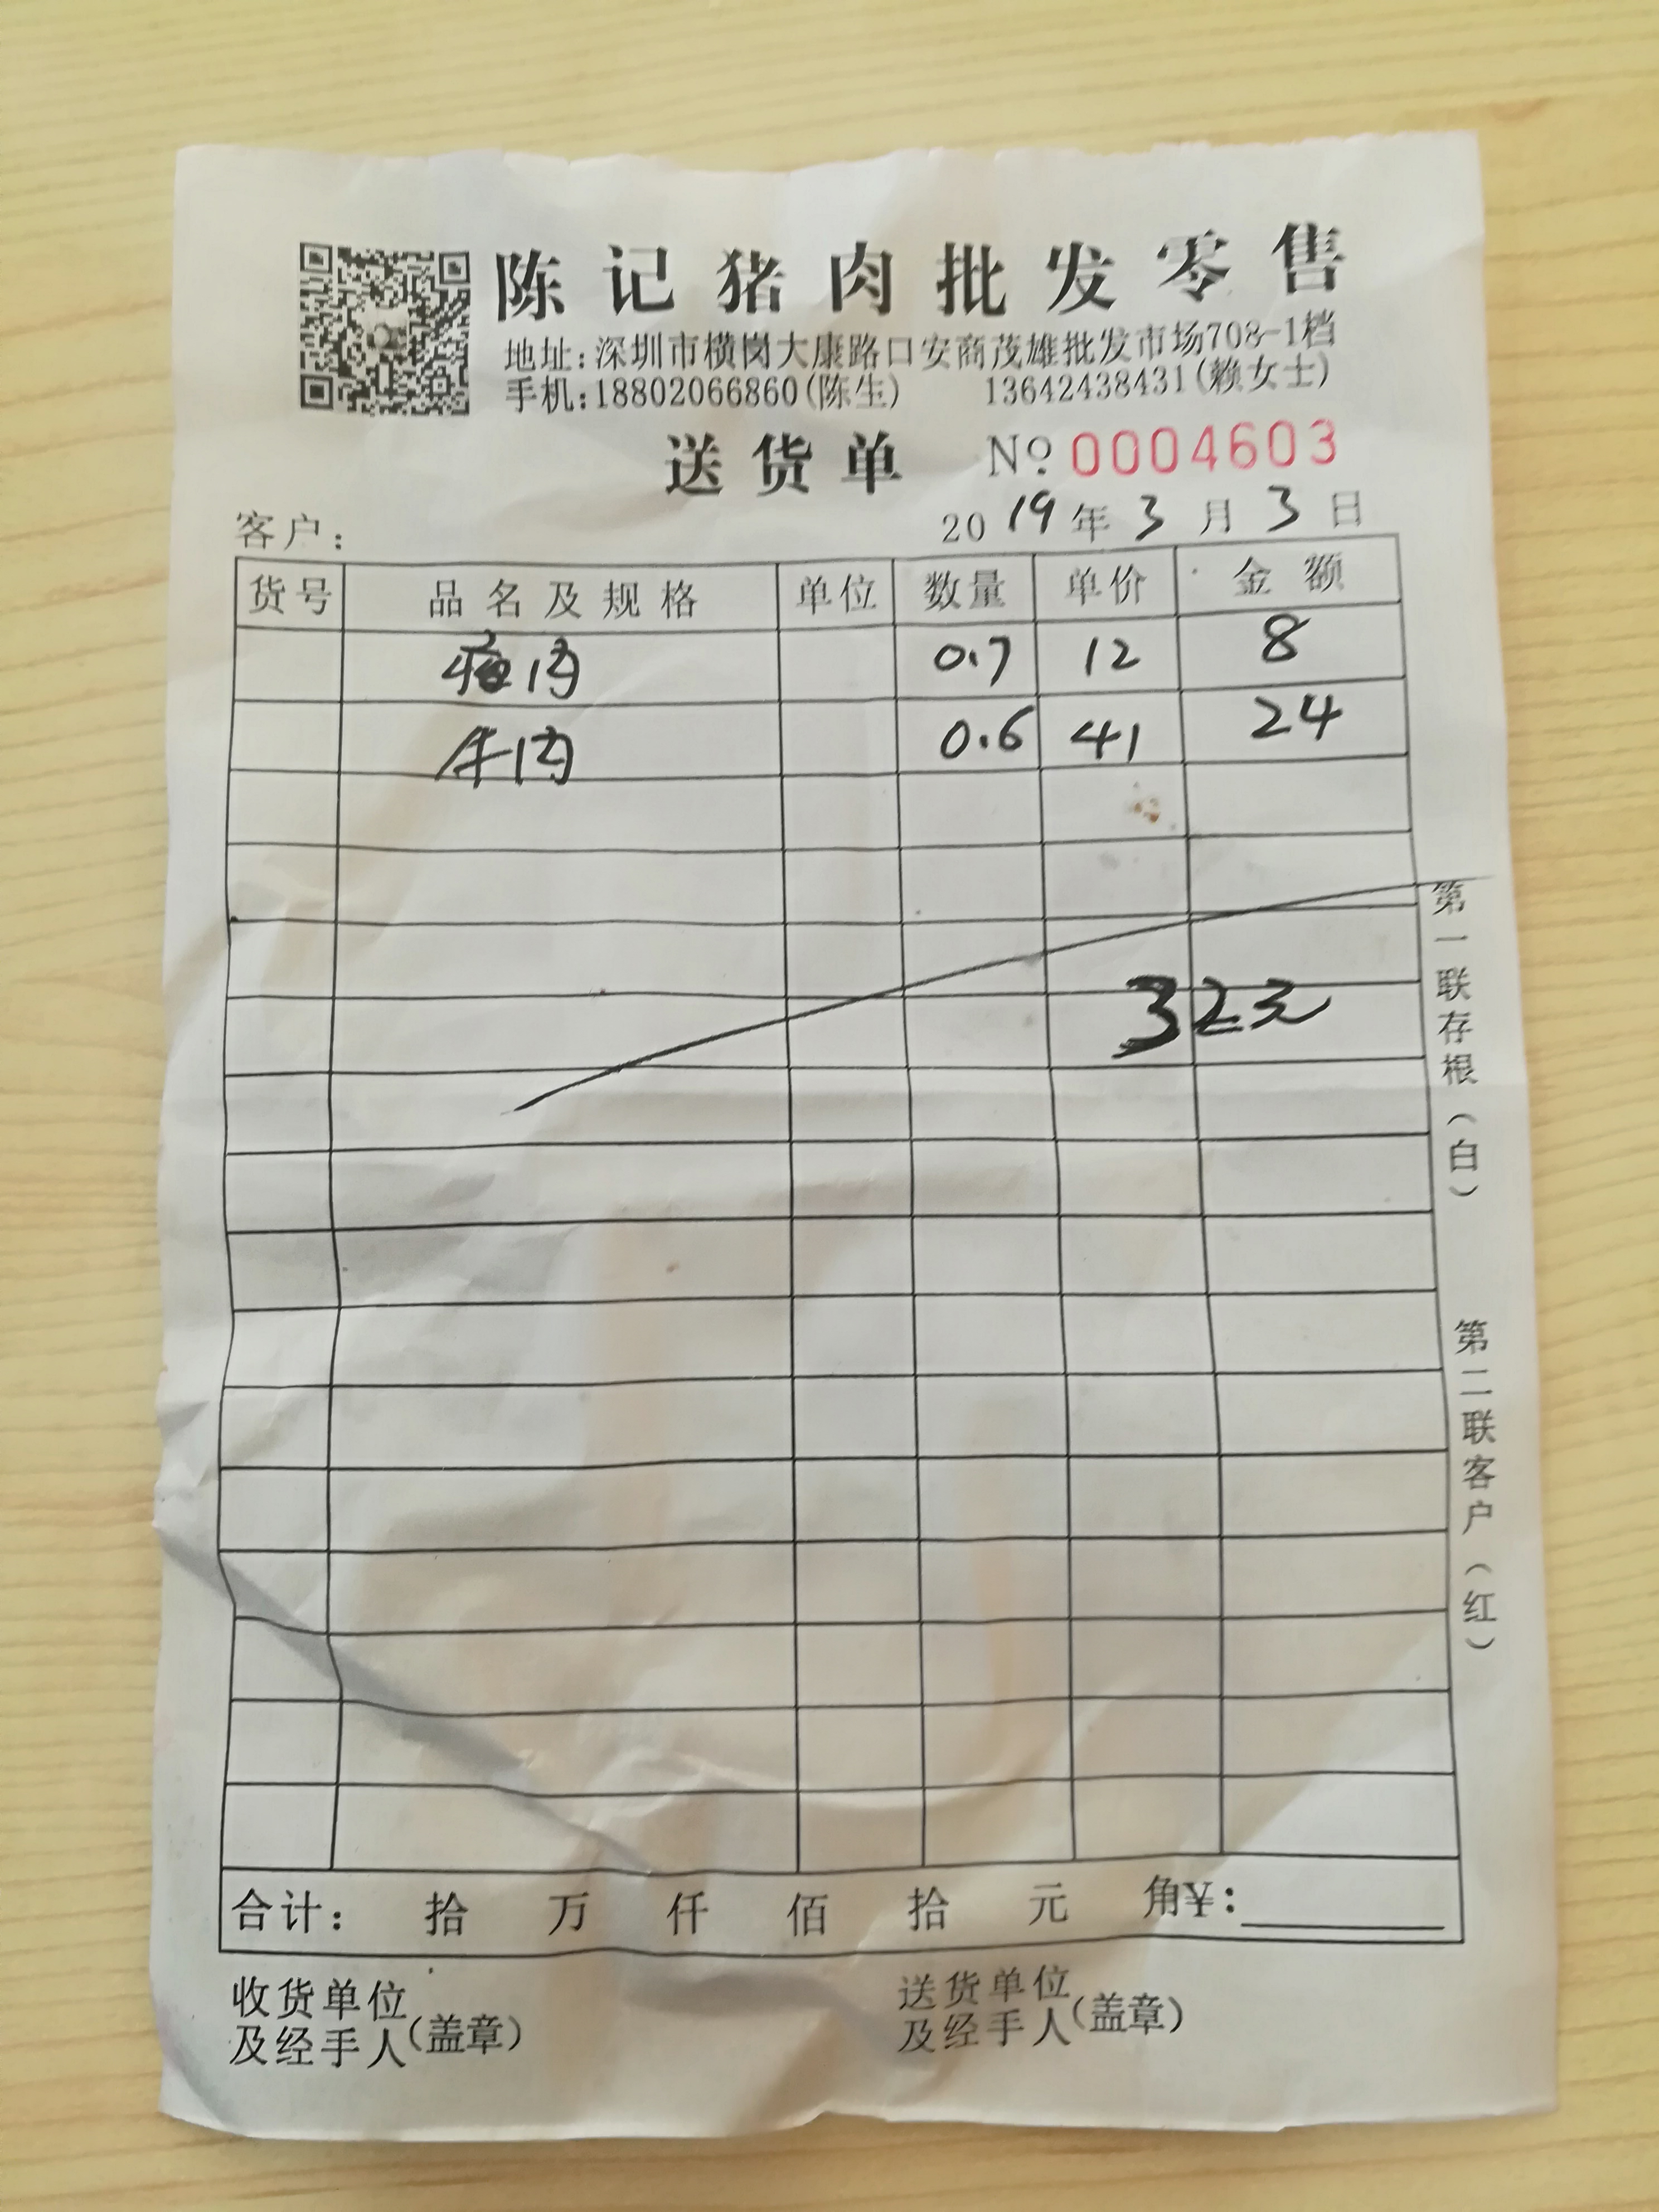 陈记猪肉批发零售
地址:深圳市横岗大康路口安商茂雄批发市场708-1档
手机:18802066860(陈生) 13642438431(赖女士)
送货单 No. 0004603
客户: 2019年3月3日
货号 品名及规格 单位 数量 单价 金额
瘦肉 0.7 12 8
牛肉 0.6 41 24
32元
合计: 拾 万 仟 佰 拾 元 角¥:
收货单位及经手人(盖章)
送货单位及经手人(盖章)
第一联存根(白)
第二联客户(红)